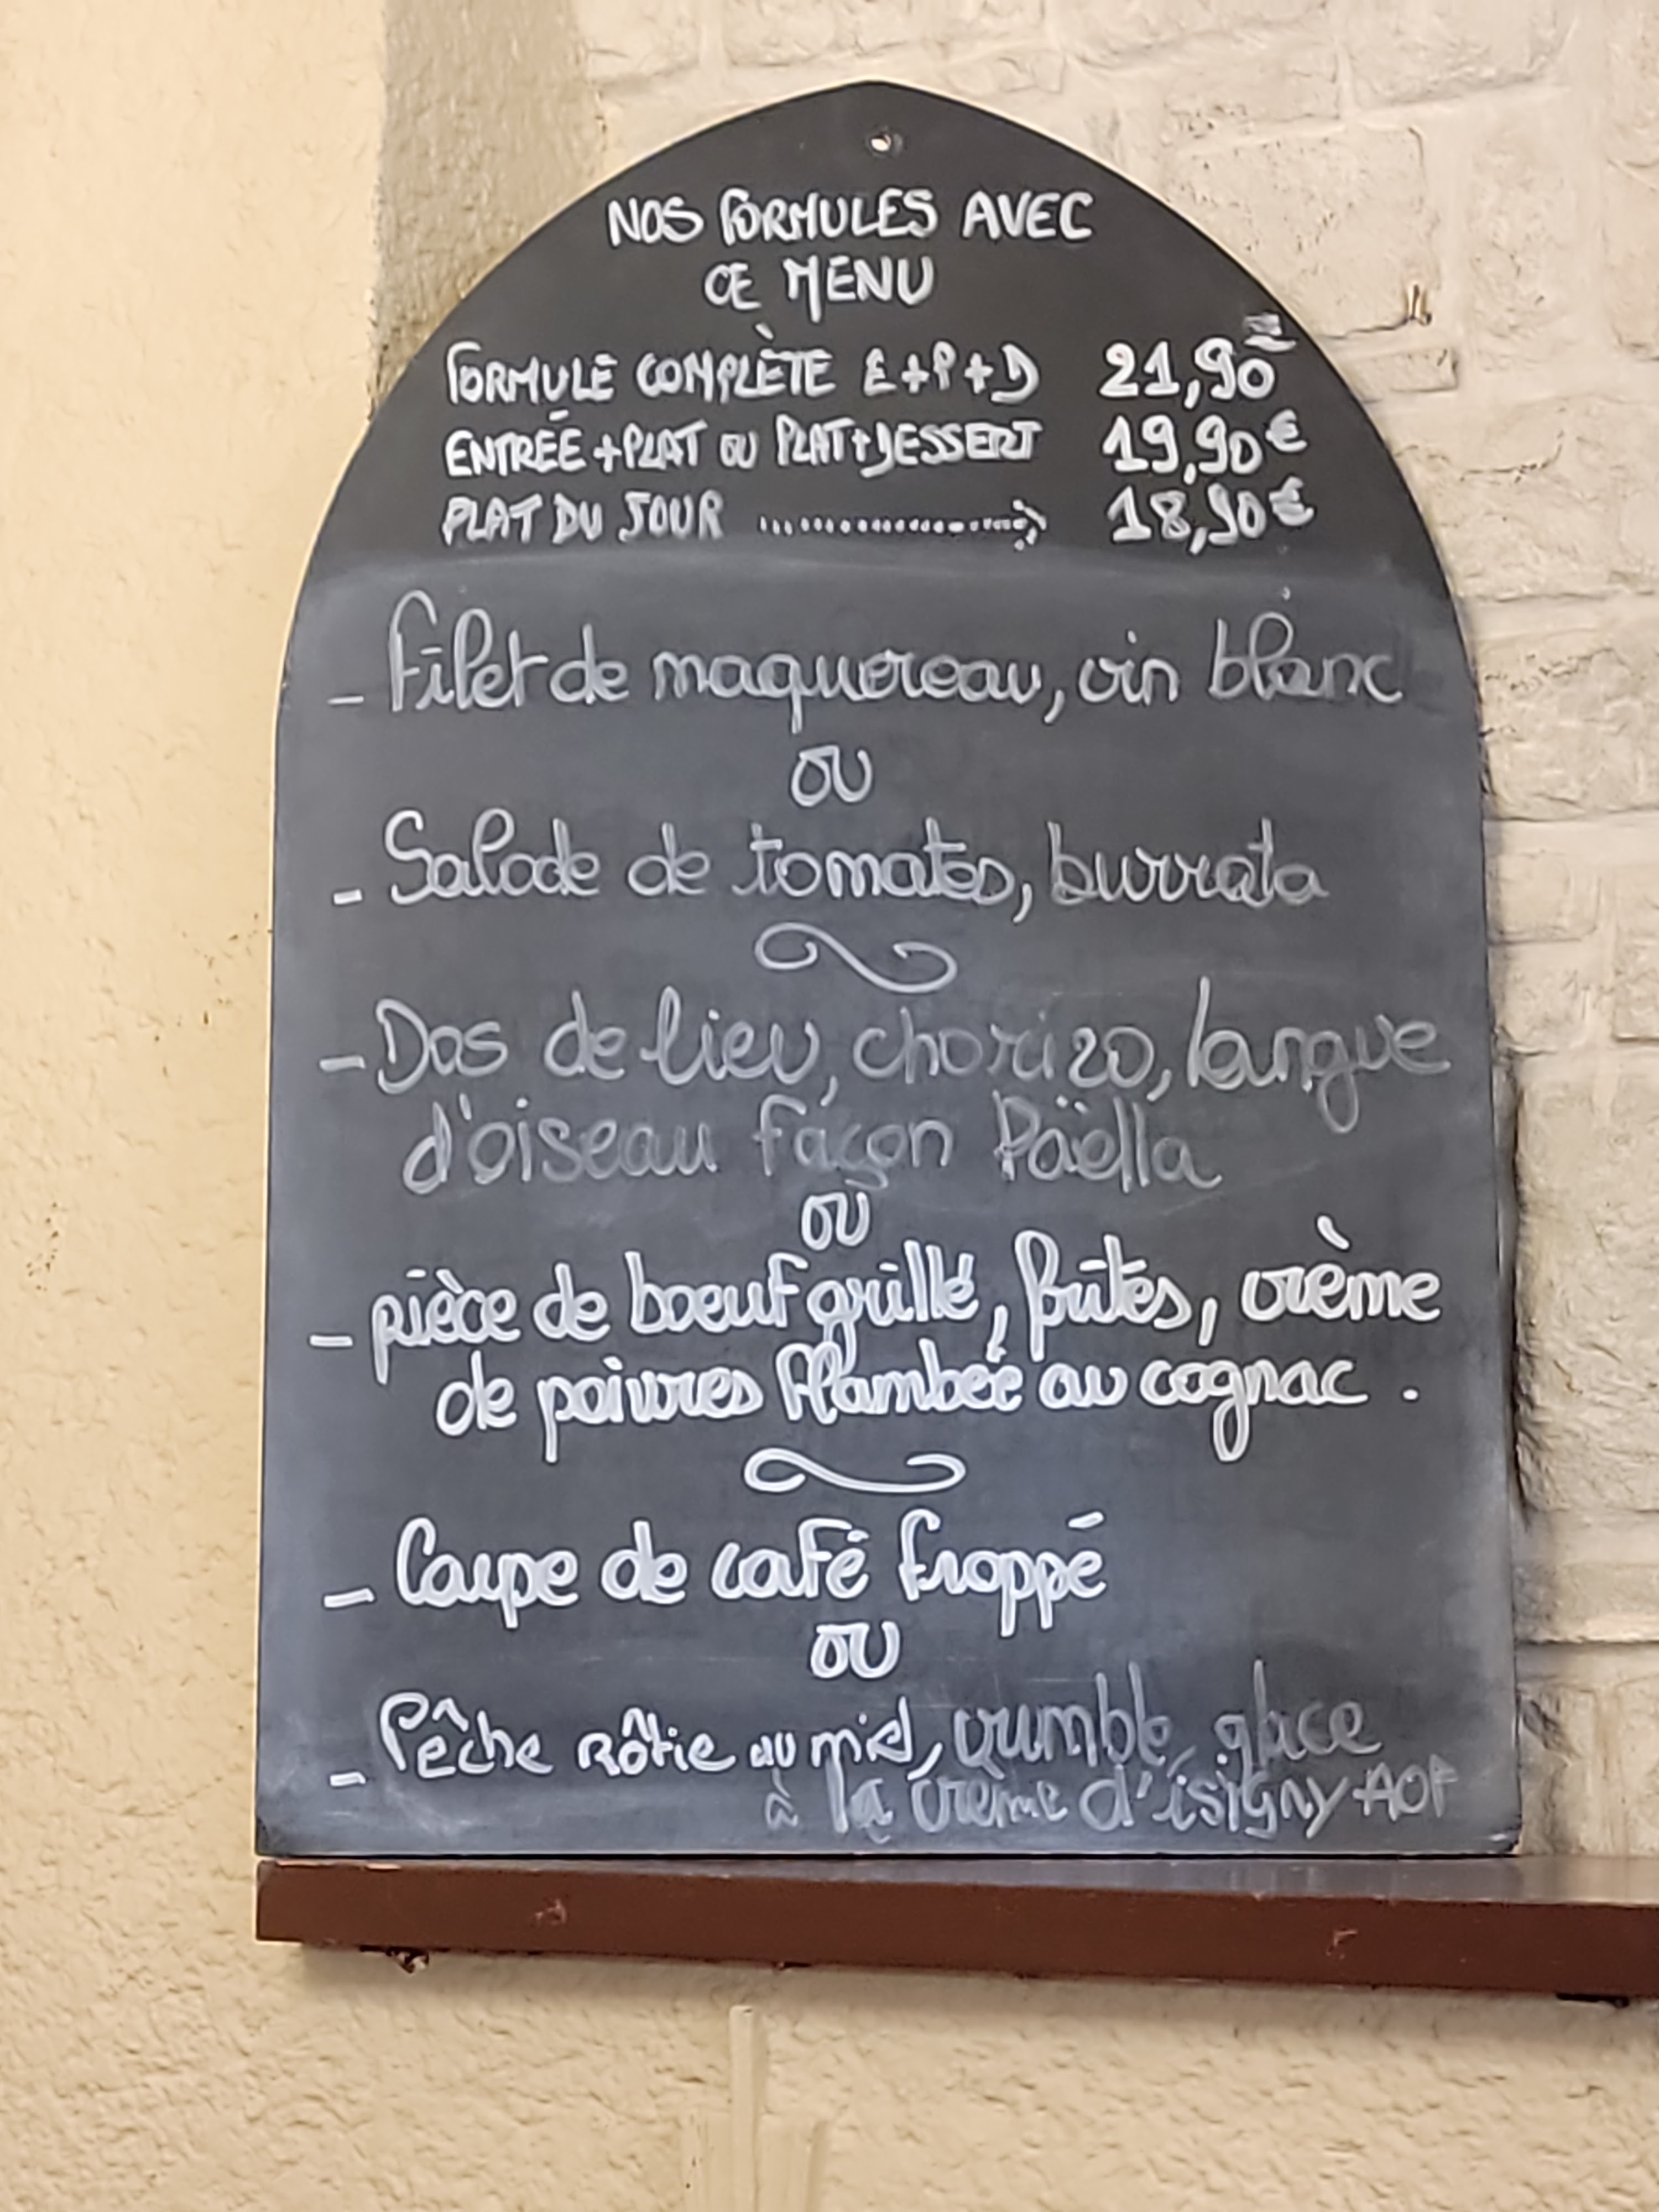 NOS FORMULES AVEC
CE MENU
FORMULE COMPLÈTE E+P+D 21,90
ENTRÉE + PLAT OU PLAT+DESSERT 19,90€
PLAT DU JOUR ............→ 18,90€
- Filet de maquereau, vin blanc
OU
- Salade de tomates, burrata
- Dos de lieu, chorizo, langue
d'oiseau façon Paëlla
OU
- pièce de boeuf grillé, frites, crème
de poivres flambée au cognac .
- Coupe de café frappé
OU
- Pêche rôtie au miel, crumble, glace
à la crème d'isigny AOP